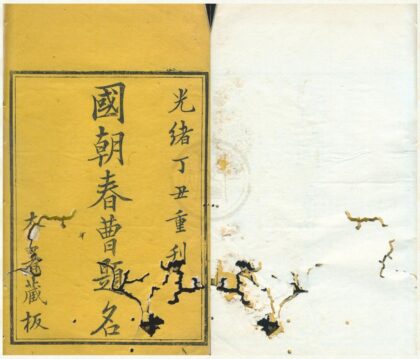 光緒丁丑重刊
國朝春曹題名
藏板